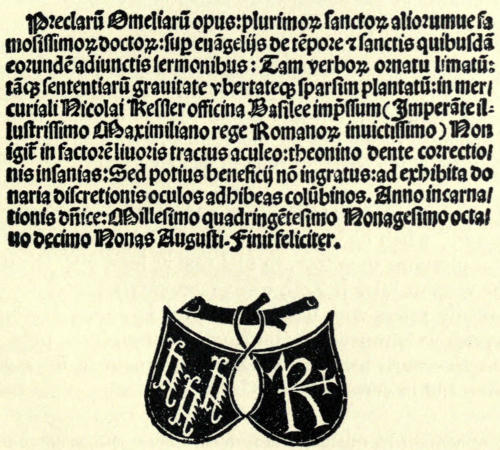 Preclarũ Omeliarũ opus: plurimoꝝ sanctoꝝ aliorumue fa
mosissimoꝝ doctoꝝ: suꝑ euãgelijs de tẽpore ⁊ sanctis quibusdã
eorundẽ adiunctis sermonibus: Tam verboꝝ ornatu limatũ:
tãqꝫ sententiarũ grauitate vbertateqꝫ sparsim plantatũ: in mer/
curiali Nicolai Kessler officina Basilee imp̃ssum (Imperãte il-
lustrissimo Maximiliano rege Romanoꝝ inuictissimo) Non
igit̃ in factorẽ liuoris tractus aculeo: theonino dente correctio/
nis insanias: Sed potius beneficij nõ ingratus: ad exhibita do
naria discretionis oculos adhibeas colũbinos. Anno incarna/
tionis dñice: Millesimo quadringẽtesimo Nonagesimo octa/
uo decimo Nonas Augusti. Finit feliciter.